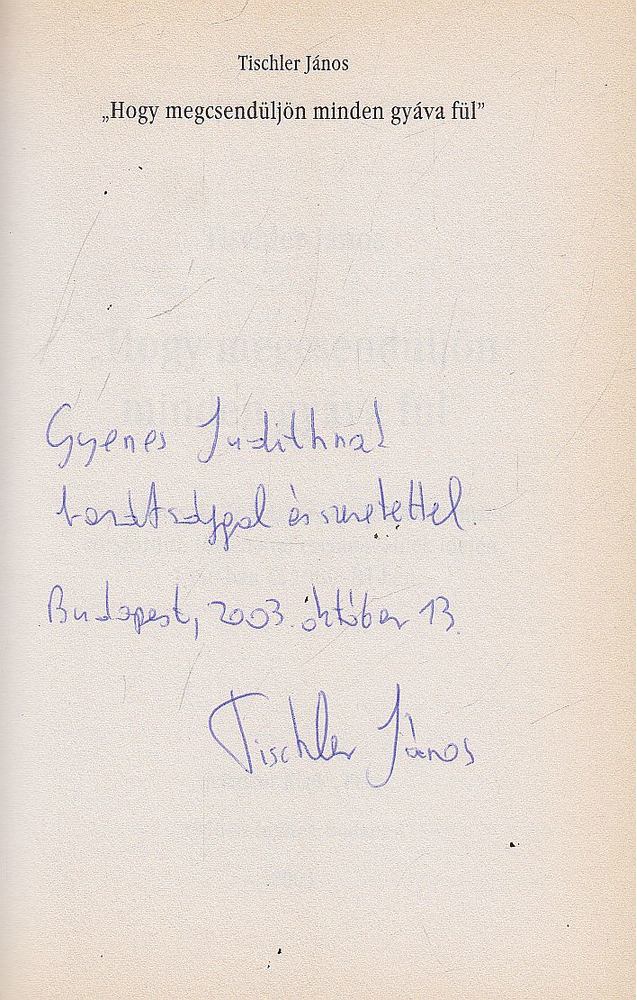 Tischler János
„Hogy megcsendüljön minden gyáva fül”
Gyenes Judithnak
barátsággal és szeretettel.
Budapest, 2003. október 13.
Tischler János